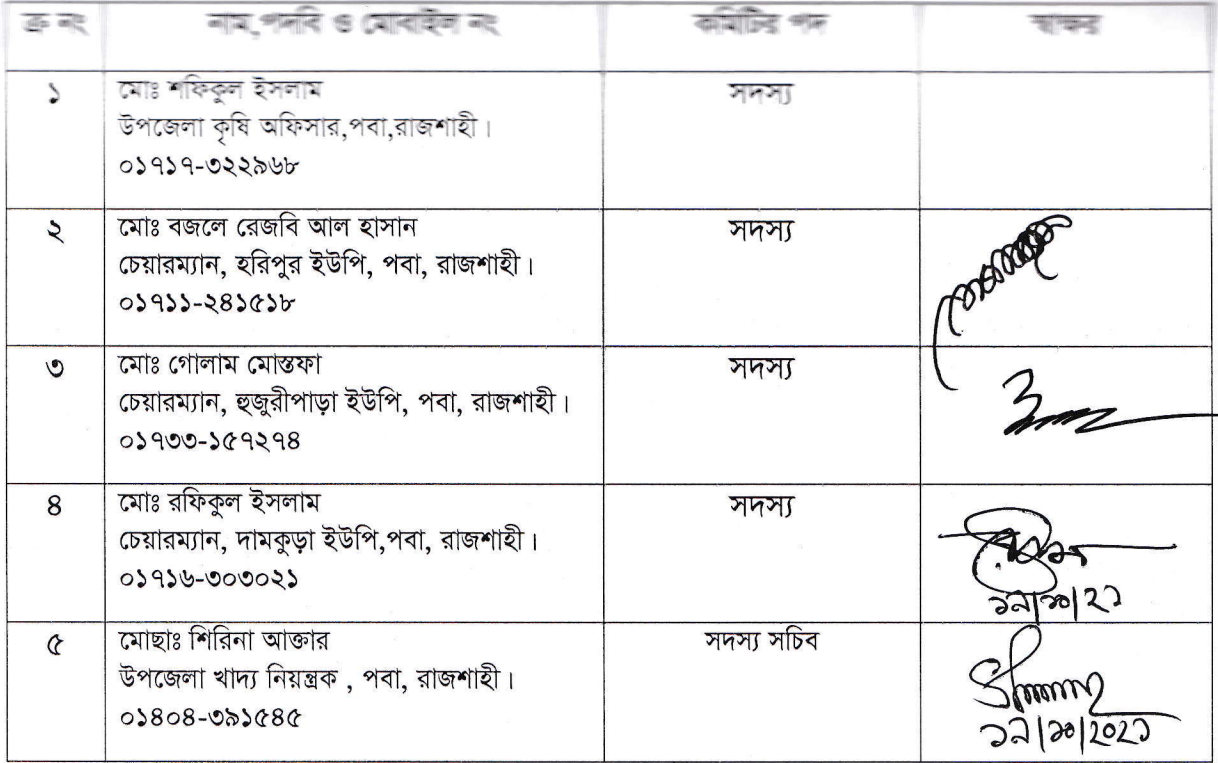 ক্র নং নাম,পদবি ও মোবাইল নং কমিটির পদ স্বাক্ষর
১ মোঃ শফিকুল ইসলাম সদস্য
উপজেলা কৃষি অফিসার,পবা,রাজশাহী।
০১৭১৭-৩২২৯৬৮
২ মোঃ বজলে রেজবি আল হাসান সদস্য
চেয়ারম্যান, হরিপুর ইউপি, পবা, রাজশাহী।
০১৭১১-২৪১৫১৮
৩ মোঃ গোলাম মোস্তফা সদস্য
চেয়ারম্যান, হুজুরীপাড়া ইউপি, পবা, রাজশাহী।
০১৭৩৩-১৫৭২৭৪
৪ মোঃ রফিকুল ইসলাম সদস্য
চেয়ারম্যান, দামকুড়া ইউপি,পবা, রাজশাহী।
০১৭১৬-৩০৩০২১
১২/১০/২১
৫ মোছাঃ শিরিনা আক্তার সদস্য সচিব
উপজেলা খাদ্য নিয়ন্ত্রক , পবা, রাজশাহী।
০১৪০৪-৩৯১৫৪৫
১২/১০/২০২১